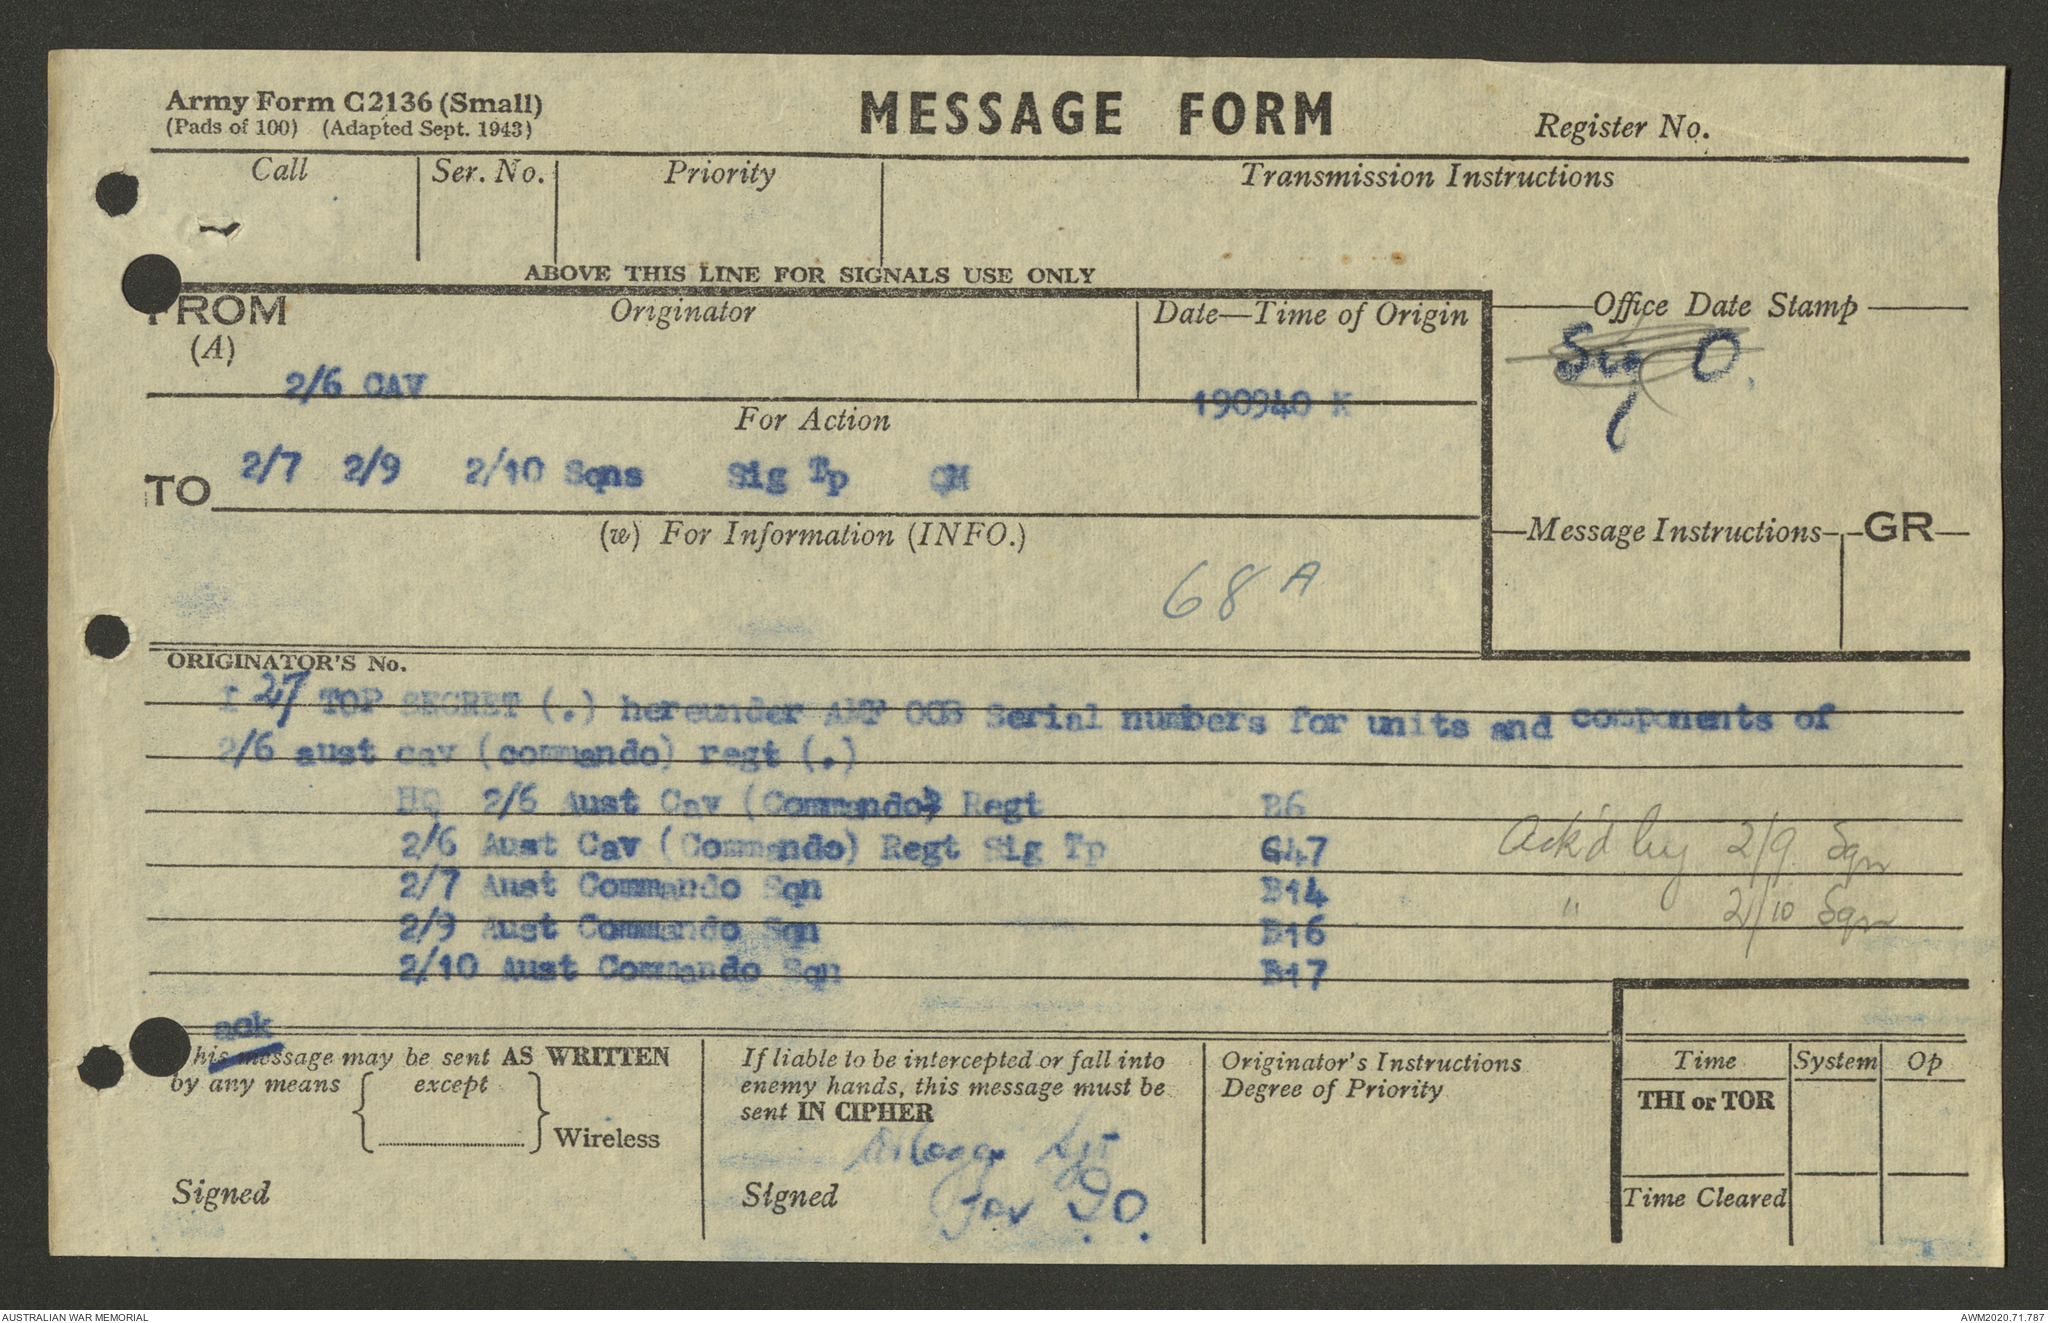 Army Form C2136 (Small)
(Pads of 100) (Adapted Sept. 1943)
MESSAGE FORM
Register No.
Call Ser. No. Priority Transmission Instructions
ABOVE THIS LINE FOR SIGNALS USE ONLY
FROM Originator Date—Time of Origin Office Date Stamp
(A)
Sig O.
2/6 CAV 190940 K
For Action
TO 2/7 2/9 2/10 Sqns Sig Tp QM
(w) For Information (INFO.)
Message Instructions GR
68 A
ORIGINATOR'S No.
I 27 TOP SECRET (.) hereunder Serial numbers for units and components of
2/6 aust cav (commando) regt (.)
HQ 2/6 Aust Cav (Commando) Regt B6
2/6 Aust Cav (Commando) Regt Sig Tp G47
2/7 Aust Commando Sqn B14
2/9 Aust Commando Sqn B16
2/10 Aust Commando Sqn B17
Ack'd by 2/9 Sqn
" 2/10 Sqn
ack
This message may be sent AS WRITTEN
by any means except
Wireless
Signed
If liable to be intercepted or fall into
enemy hands, this message must be
sent IN CIPHER
Lt
Signed for IO.
Originator's Instructions
Degree of Priority
Time System Op
THI or TOR
Time Cleared
AUSTRALIAN WAR MEMORIAL AWM2020.71.787